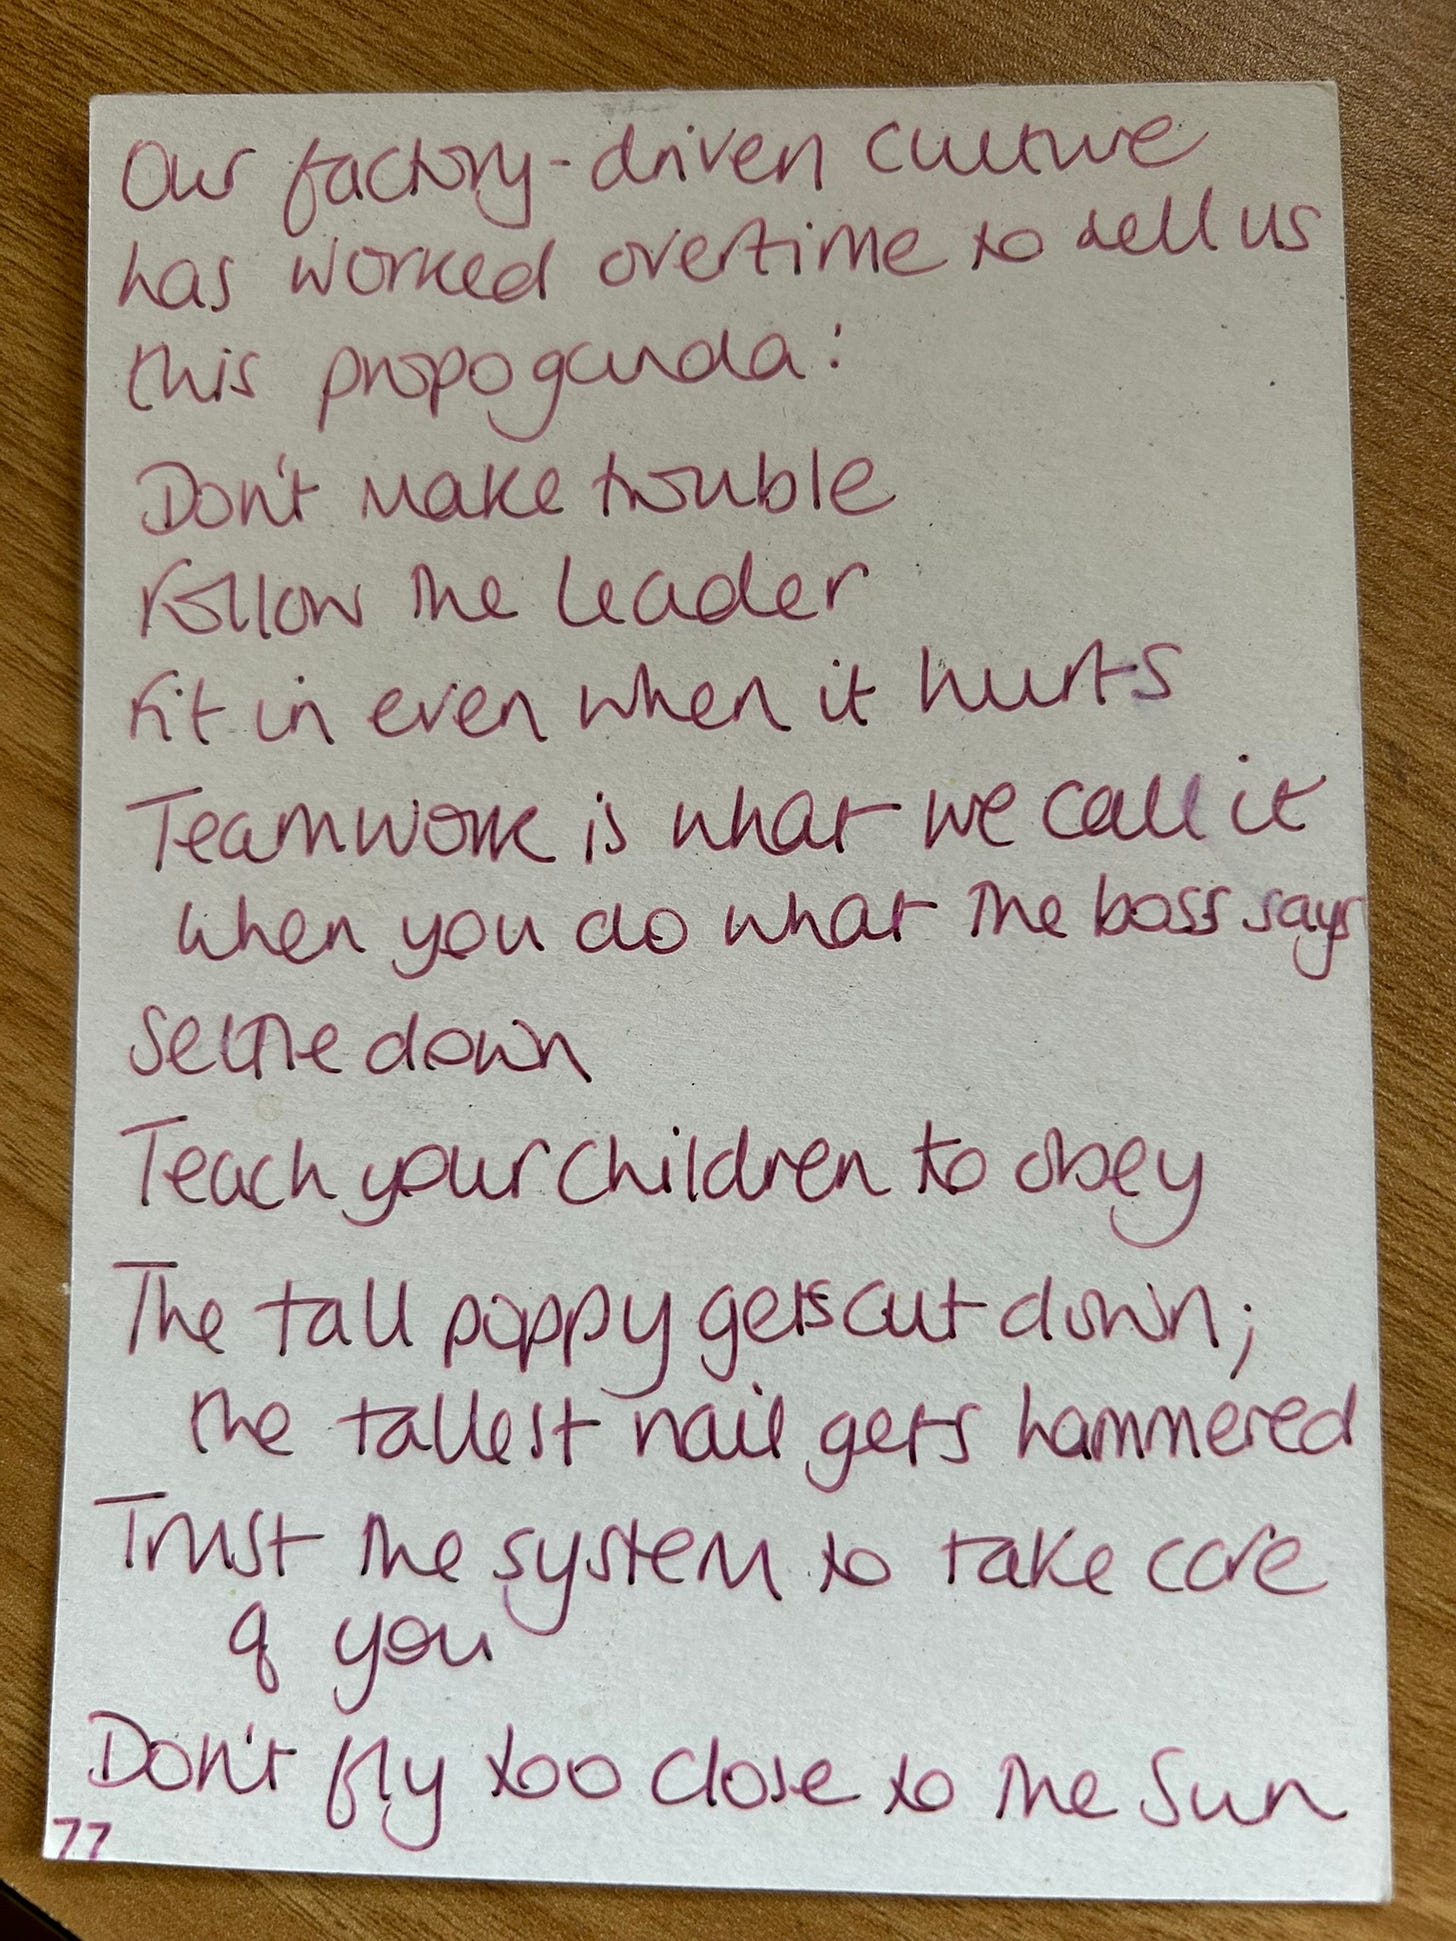 Our factory-driven culture
has worked overtime to tell us
this propoganda:
Don't make trouble
Follow the leader
Fit in even when it hurts
Teamwork is what we call it
when you do what the boss says
Settle down
Teach your children to obey
The tall poppy gets cut down;
the tallest nail gets hammered
Trust the system to take care
of you
Don't fly too close to the sun
77